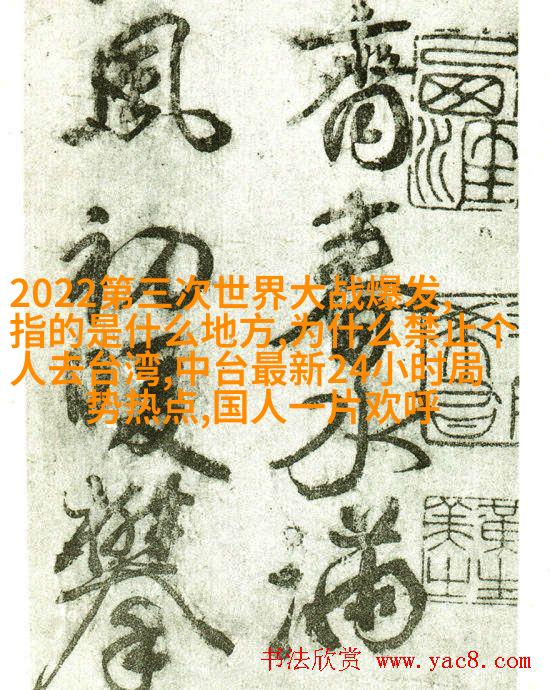 水滿
風初攀
2022第三次世界大战爆发,
指的是什么地方,为什么禁止个
人去台湾,中台最新24小时局
势热点,国人一片欢呼
书法欣赏 www.yac8.com